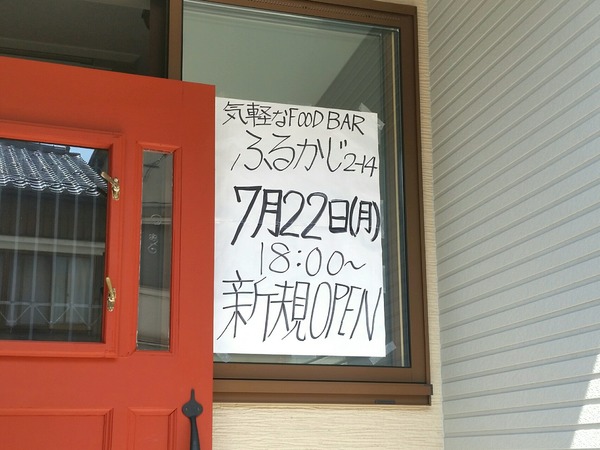 気軽なFOOD BAR
ふるかじ2-14
7月22日(月)
18:00~
新規OPEN